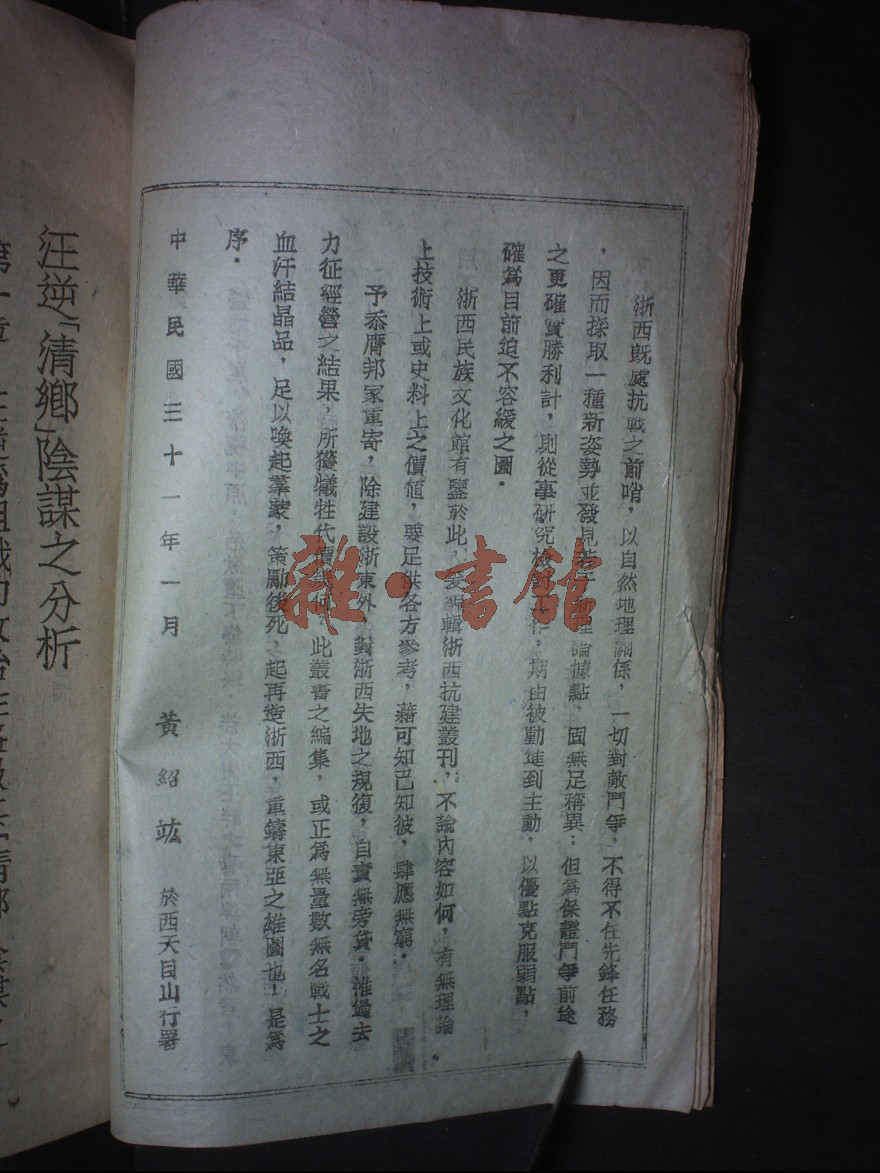 浙西旣處抗戰之前哨，以自然地理關係，一切對敵鬥爭，不得不任先鋒任務
，因而採取一種新姿勢並發見若干新理論據點，固無足稱異；但爲保證鬥爭前途
之更確實勝利計，則從事研究檢討工作，期由被動進到主動，以優點克服弱點，
確爲目前迫不容緩之圖．
浙西民族文化館有鑒於此，爰編輯浙西抗建叢刊，不論內容如何，有無理論
上技術上或史料上之價値，要足供各方參考，藉可知己知彼，肆應無窮．
予忝膺邦家重寄，除建設浙東外，對浙西失地之規復，自責無旁貸．惟過去
力征經營之結果，所獲犧牲代價幾何，此叢書之編集，或正爲無量數無名戰士之
血汗結晶品，足以喚起羣蒙，策勵後死，起再造浙西，重鑄東亞之雄圖也！是爲
序．
中華民國三十一年一月　黃紹竑　於西天目山行署
汪逆「清鄉」陰謀之分析
第一章
雜·書館